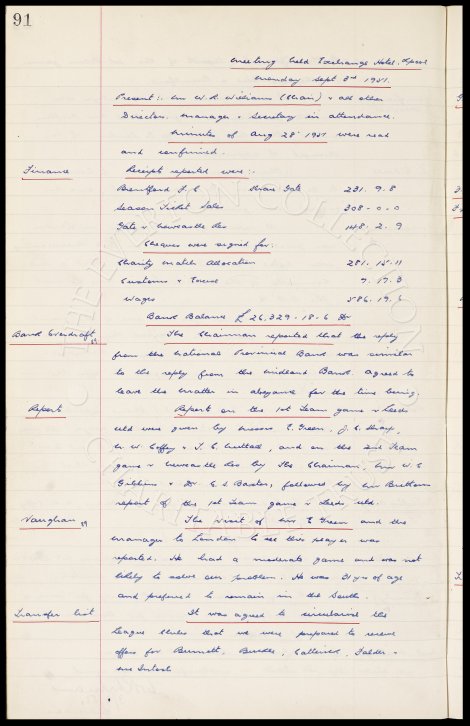 91
Meeting held Exchange Hotel. L'pool
Monday Sept 3rd 1951.
Present:. Mr W. R. Williams (Chair) & all other
Directors. Manager & Secretary in attendance.
Minutes of Aug 28' 1951 were read
and confirmed.
Finance
Receipts reported were:.
Brentford F. C. Share Gate 231. 9. 8
Season Ticket Sales 308 - 0. 0
Gate v Newcastle Res 148. 2. 9
Cheques were signed for.
Charity Match Allocation 281. 15. 11
Customs & Excise 7. 17. 3
Wages 586. 19. 6
Bank Balance £ 26,329 - 18. 6 Dr
Bank Overdraft
The Chairman reported that the reply
from the National Provincial Bank was similar
to the reply from the Midland Bank. Agreed to
leave the matter in abeyance for the time being.
Report
Report on the 1st Team game v Leeds
Utd were given by Messrs E. Green, J. C. Sharp,
W. W. Gaffey & T. C. Nuttall, and on the 2nd Team
game v Newcastle Res by The Chairman, Mr W. C
Gibbins & Dr C. S. Baxter, followed by Mr Britton's
report of the 1st Team game v Leeds, Utd.
Vaughan
The visit of Mr E Green and the
Manager to London to see this player was
reported. He had a moderate game and was not
likely to solve our problem. He was 31 yrs of age
and preferred to remain in the South.
Transfer list
It was agreed to circularise the
League Clubs that we were prepared to receive
offers for Burnett, Bendle, Catterick, Falder &
McIntosh
THE EVERTON COLLECTION